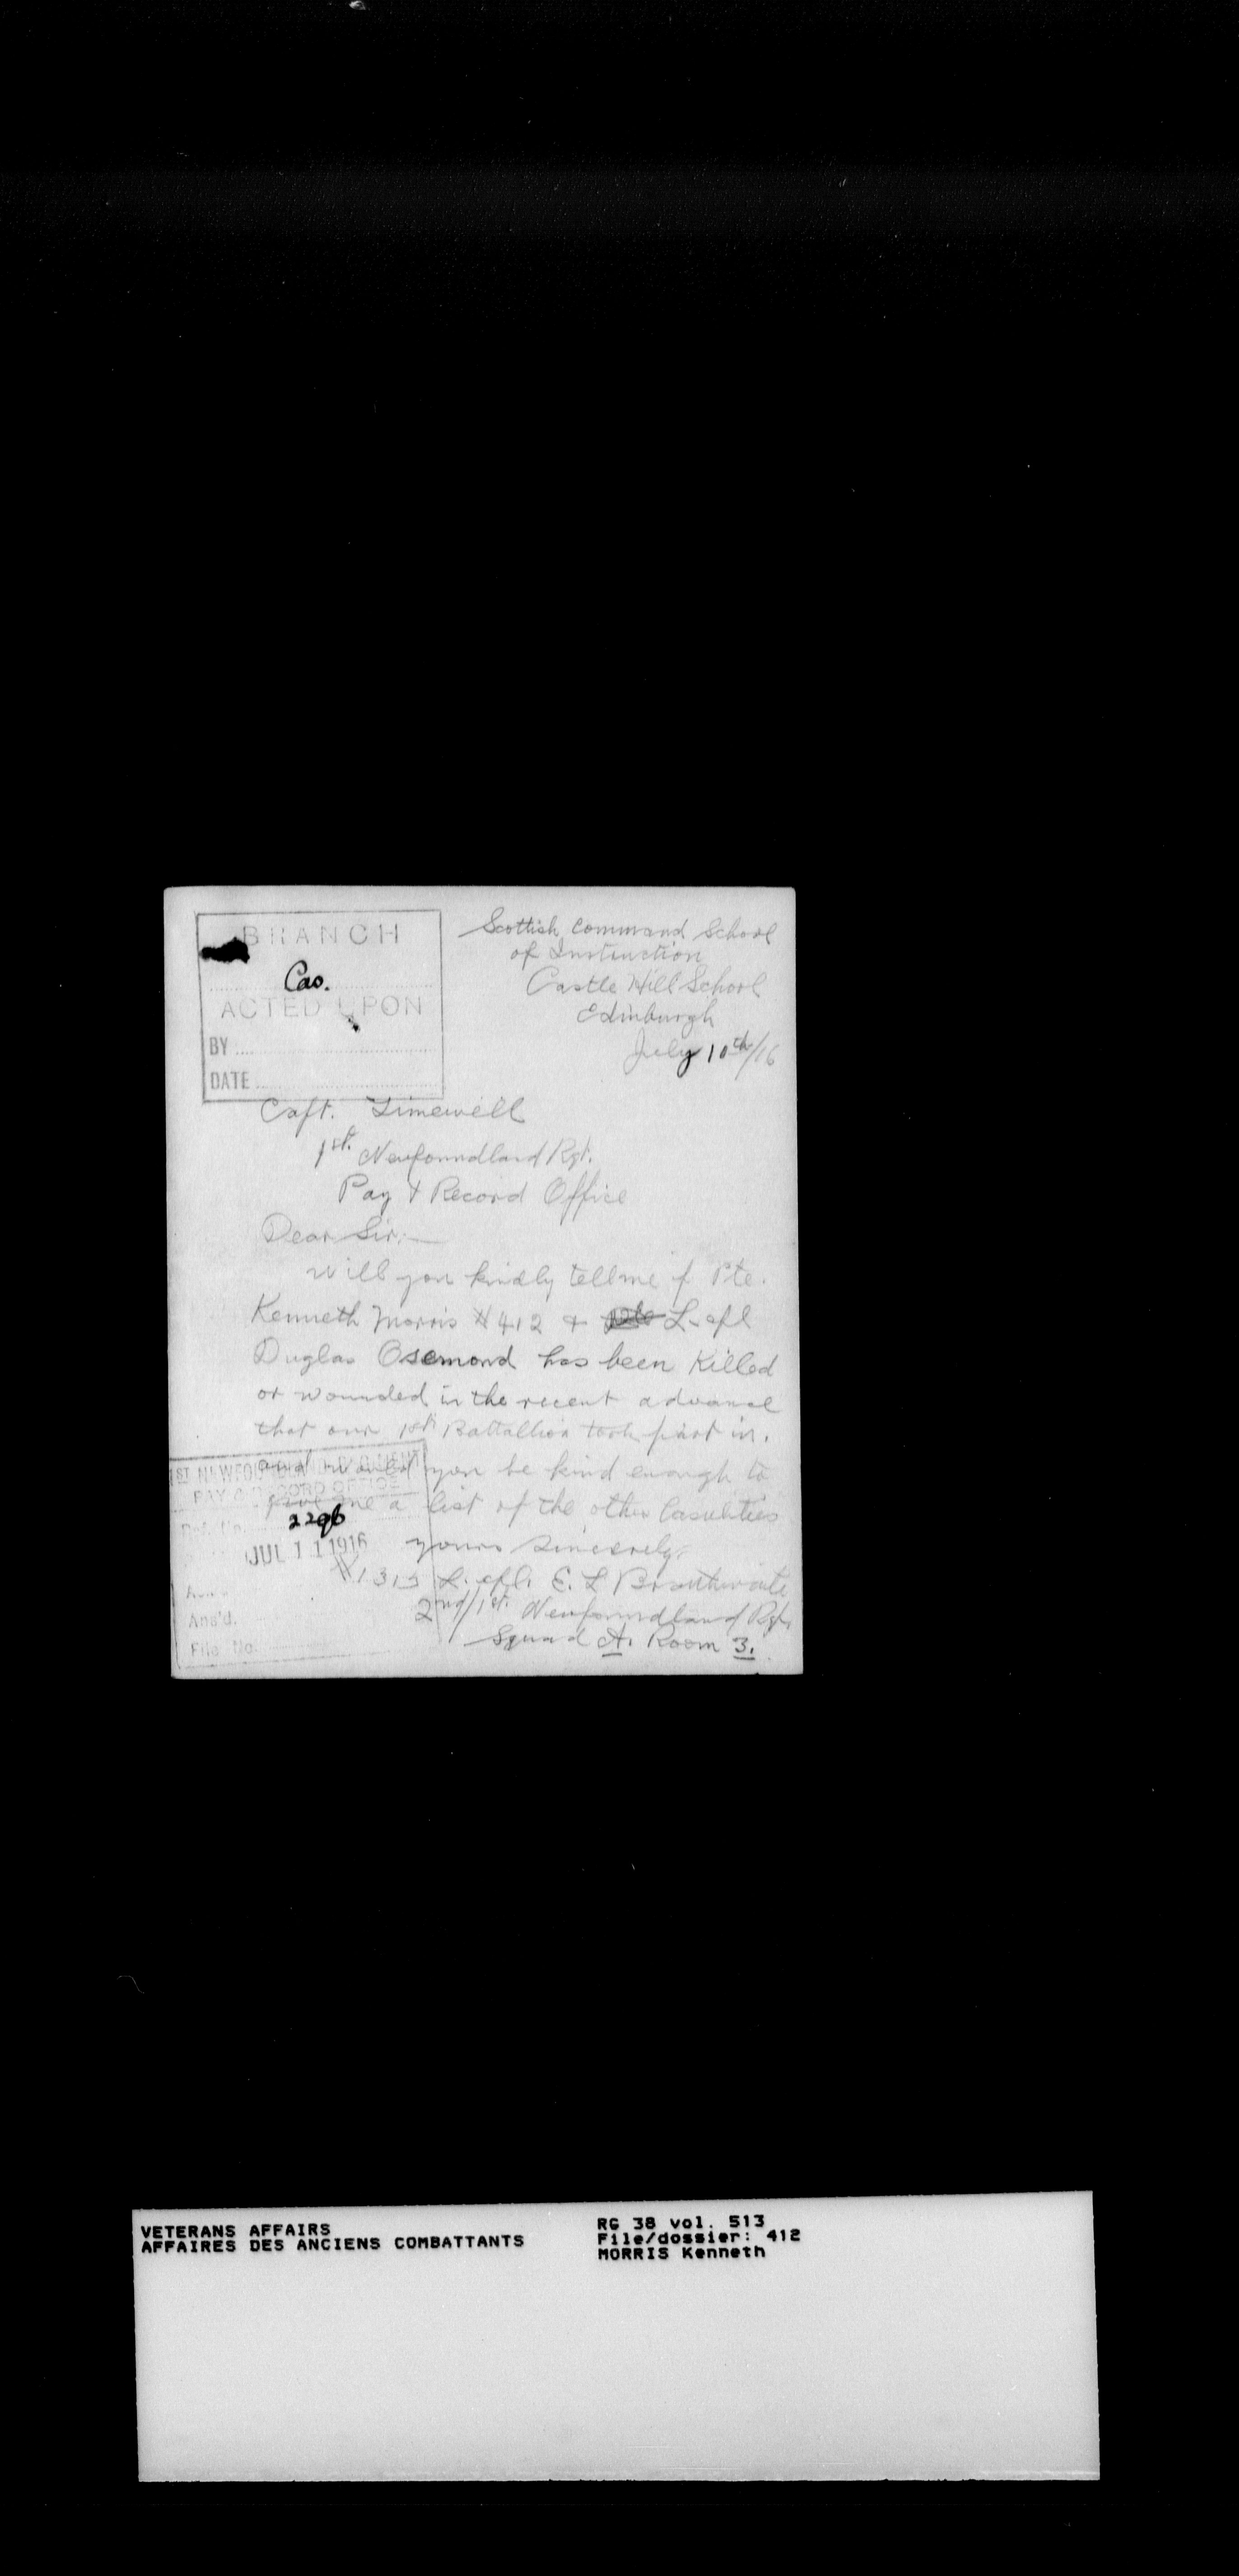 BRANCH
Cas.
ACTED UPON
BY
DATE
Scottish Command School
of Instruction
Castle Hill School
Edinburgh
July 10th/16
Capt. Timewell
1st. Newfoundland Rgt.
Pay & Record Office
Dear Sir:—
Will you kindly tell me if Pte.
Kenneth Morris #412 + L. cpl
Duglas Osemond has been Killed
or wounded in the recent advance
that our 1st Battallion took part in.
and would you be kind enough to
give me a list of the other Casulities
yours sincerely
L. cpl. E. L Braithwaite
2nd/1st. Newfoundland Rgt.
Squad A. Room 3.
1ST NEWFOUNDLAND REGIMENT
PAY & RECORD OFFICE
Ref. No.
JUL 11 1916
Ans'd.
File No.
VETERANS AFFAIRS
AFFAIRES DES ANCIENS COMBATTANTS
RG 38 vol. 513
File/dossier: 412
MORRIS Kenneth